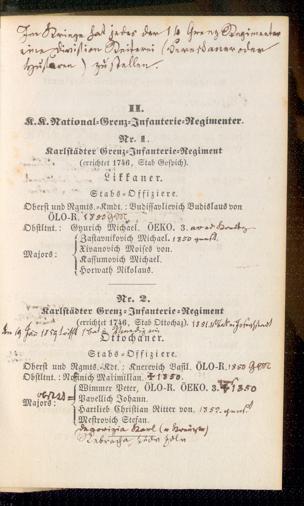 Im Kriege hat jedes der 14 Grenz Regimenter
eine Division Reiterei (Seressaner oder
Husaren) zu stellen.
II.
K.K. National-Grenz-Infanterie-Regimenter.
Nr. 1.
Karlstädter Grenz-Infanterie-Regiment
(errichtet 1746, Stab Gospich).
Likkaner.
Stabs-Offiziere.
Oberst und Rgmts.-Kmdt.: Budissavlievich Budislaus von
ÖLO-R. 1850
Obstltnt.: Gyurich Michael. ÖEKO. 3.
Zastavnikovich Michael. 1850
Majors: Xivanovich Moises von.
Kassumovich Michael.
Horwath Nikolaus.
Nr. 2.
Karlstädter Grenz-Infanterie-Regiment
(errichtet 1746, Stab Ottochaz).
Ottochaner.
Stabs-Offiziere.
Oberst und Rgmts.-Kdt.: Knezevich Basil. ÖLO-R. 1850
Obstltnt.: Maximillian. 1850.
Wimmer Peter, ÖLO-R. ÖEKO. 3. 1850
Majors: Pavellich Johann.
Hartlieb Christian Ritter von, 1852.
Mestrovich Stefan.